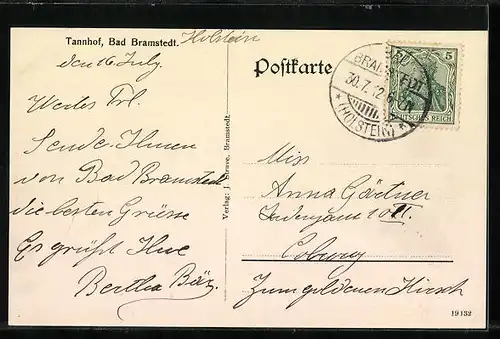 Tannhof, Bad Bramstedt. Holstein
den 16 July.
Wertes Frl.
Sende Ihnen
von Bad Bramstedt
die besten Grüsse
Es grüßt Ihne
Bertha Bär.
Verlag: J. Struve, Bramstedt.
Postkarte
30.7.12
(HOLSTEIN)
5
DEUTSCHES REICH
Miss
Anna Gärtner
10 II.
Coburg
Zum goldenen Hirsch
19132